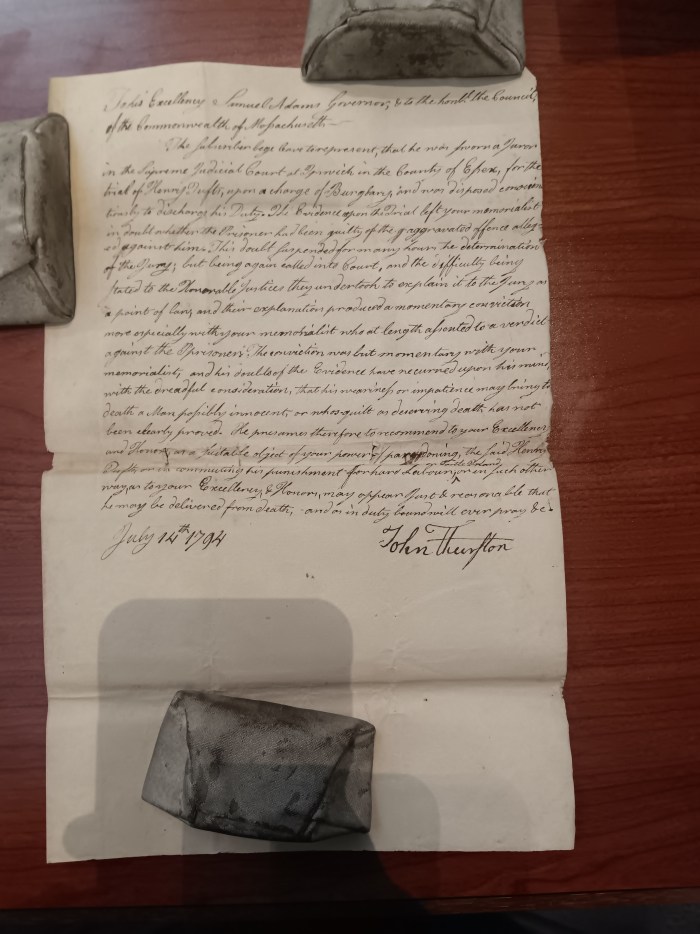 To his Excellency Samuel Adams Governor, & to the honbl. the Council,
of the Commonwealth of Massachusetts
The Subscriber begs leave to represent, that he was sworn a Juror
in the Supreme Judicial Court at Ipswich in the County of Essex, for the
trial of Henry Tufts, upon a charge of Burglary, and was disposed conscien
tiously to discharge his Duty. The Evidence upon the Trial left your memorialist
in doubt whether the Prisoner had been guilty of the aggravated offence alleg-
ed against him. This doubt suspended for many hours the determination
of the Jury; but being again called into Court, and the difficulty being
stated to the Honorable Justices they undertook to explain it to the Jury as
a point of law, and their explanation produced a momentary conviction
more especially with your memorialist who at length assented to a verdict
against the Prisoner. The conviction was but momentary with your
memorialist, and his doubts of the Evidence have recurred upon his mind,
with the dreadful consideration, that his weariness or impatience may bring to
death a Man possibly innocent, or whose guilt as deserving death has not
been clearly proved. He presumes therefore to recommend to your Excellency
and Honors as a suitable object of your power of pardoning, the said Henry
Tufts or in commuting his punishment for hard Labour, or in such other
on Castle Island
way, as to your Excellency, & Honors, may appear Just & reasonable that
he may be delivered from death, and as in duty bound will ever pray &c.
July 14th 1794
John Thurston